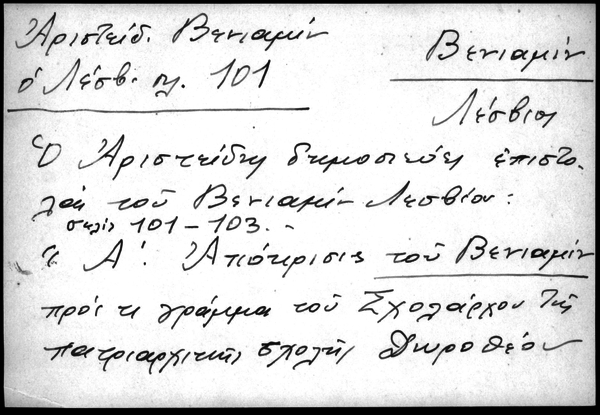 Ἀριστείδ. Βενιαμίν
ὁ Λέσβ. σελ. 101
Βενιαμίν
Λέσβιος
Ὁ Ἀριστείδης δημοσιεύει ἐπιστο-
λὰς τοῦ Βενιαμίν Λεσβίου:
σελὶς 101-103. -
Α'. Ἀπόκρισις τοῦ Βενιαμίν
πρὸς τι γράμμα τοῦ Σχολάρχου τῆς
πατριαρχικῆς σχολῆς Δωροθέου